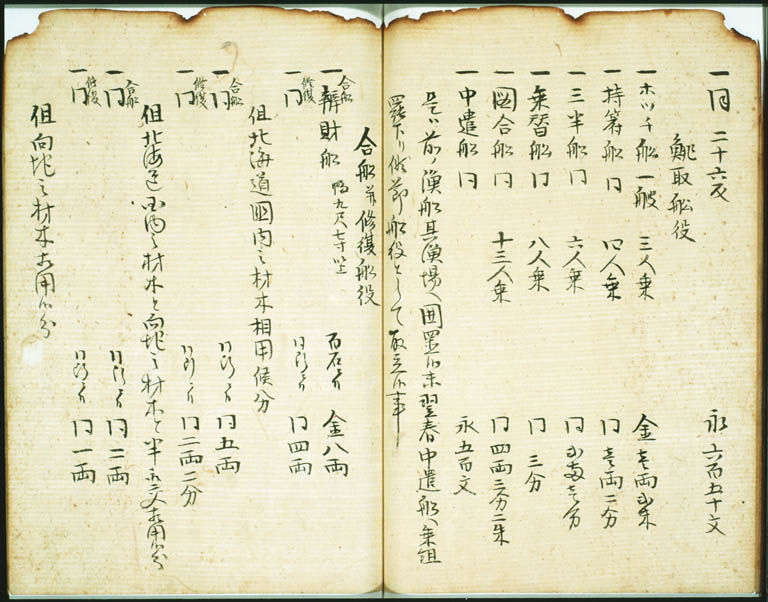 一同 二十六反 永六百五十文
鯡取船役
一ホツチ船一艘 三人乗 金壱両弐朱
一持符船 同 四人乗 同壱両二分
一三半船 同 六人乗 同弐両壱分
一乗替船 同 八人乗 同三分
一図合船 同 十三人乗 同四両三分二朱
一中遣船 同 永五百文
是ハ前ノ漁船具漁場ヘ囲置候末翌春中遣船ヘ乗組
罷下リ候節船役として取立候事
合船并修復船役
一合船 弁財船 幅九尺七寸以上 百石ニ付 金八両
一修復 同 同断ニ付 同四両
但北海道国内之材木相用候分
一合船 同 同断ニ付 同五両
一修復 同 同断ニ付 同二両二分
但北海道国内之材木と向地之材木と半交相用候分
一合船 同 同断ニ付 同二両
一修復 同 同断ニ付 同一両
但向地之材木相用候分